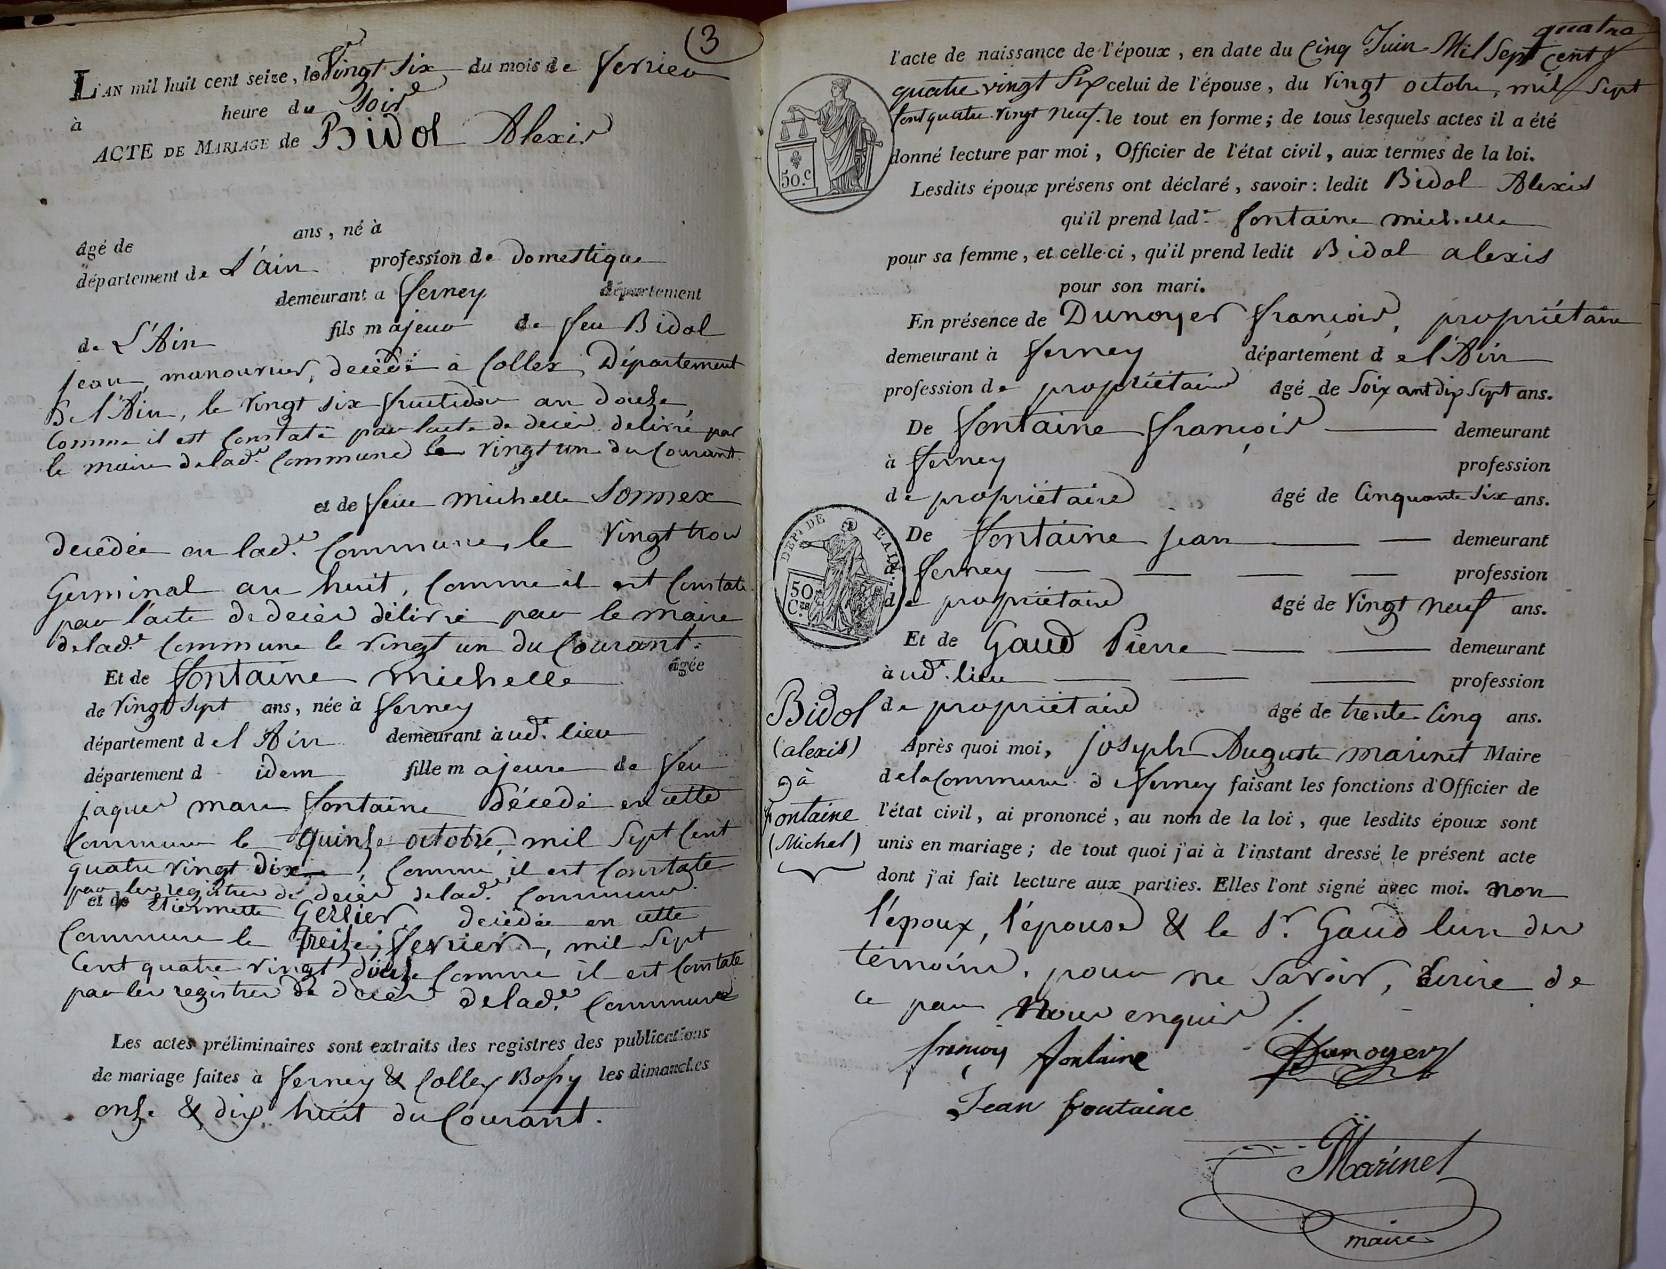 (3
L'AN mil huit cent seize, le Vingt Six du mois de fevrier
à heure du Soir
ACTE DE MARIAGE de Bidol Alexis
âgé de ans, né à
département de L'ain profession de domestique
demeurant a ferney département
de L'Ain fils majeur de feu Bidol
jean, manouvrier, decédé à Collex, Département
De l'Ain, le vingt six fructidor an douze,
Comme il est Constaté par l'acte de decès delivré par
le maire de lad.e Commune le vingt un du Courant
et de feue michelle Sonnex
decédée en lad.e Commune, le vingt trois
Germinal an huit, Comme il est Constaté
par l'acte de decès délivré par le maire
de lad.e Commune le vingt un du Courant.
Et de fontaine michelle âgée
de vingt Sept ans, née à ferney
département de l'Ain demeurant à ud.t lieu
département d idem fille majeure de feu
jaques marc fontaine décédé en cette
Commune le quinze octobre, mil Sept Cent
quatre vingt dix, Comme il est Constaté
par les registres de decès de lad.e Commune.
et de Etiennette Gerlier decédée en cette
Commune le treize fevrier, mil Sept
Cent quatre vingt douze Comme il est Constaté
par les registres de decès de lad.e Commune
Les actes préliminaires sont extraits des registres des publications
de mariage faites à ferney & Collex Bossy les dimanches
onze & dix huit du Courant.
quatre
l'acte de naissance de l'époux, en date du Cinq Juin Mil Sept Cent
quatre vingt Six celui de l'épouse, du vingt octobre, mil Sept
Cent quatre vingt neuf. le tout en forme; de tous lesquels actes il a été
donné lecture par moi, Officier de l'état civil, aux termes de la loi.
Lesdits époux présens ont déclaré, savoir: ledit Bidol Alexis
qu'il prend lad.e fontaine michelle
pour sa femme, et celle-ci, qu'il prend ledit Bidol alexis
pour son mari.
En présence de Dunoyer françois, propriétaire
demeurant à ferney département de l'Ain
profession de propriétaire âgé de Soixant dix Sept ans.
De fontaine françois demeurant
à ferney profession
de propriétaire âgé de Cinquante Six ans.
De fontaine jean demeurant
à ferney profession
de propriétaire âgé de vingt neuf ans.
Et de Gaud Pierre demeurant
à ud.t lieu profession
de propriétaire âgé de trente Cinq ans.
Après quoi moi, joseph Auguste marinet Maire
de la Commune de ferney faisant les fonctions d'Officier de
l'état civil, ai prononcé, au nom de la loi, que lesdits époux sont
unis en mariage; de tout quoi j'ai à l'instant dressé le présent acte
dont j'ai fait lecture aux parties. Elles l'ont signé avec moi. non
l'époux, l'épouse & le S.r Gaud l'un des
témoins. pour ne Savoir, Ecrire de
ce par Nous enquis /.
françois fontaine Dunoyer
Jean fontaine
Marinet
maire
Bidol
(alexis)
à
fontaine
(Michel)
50.c
DEP.t DE L'AIN.
50
C.es